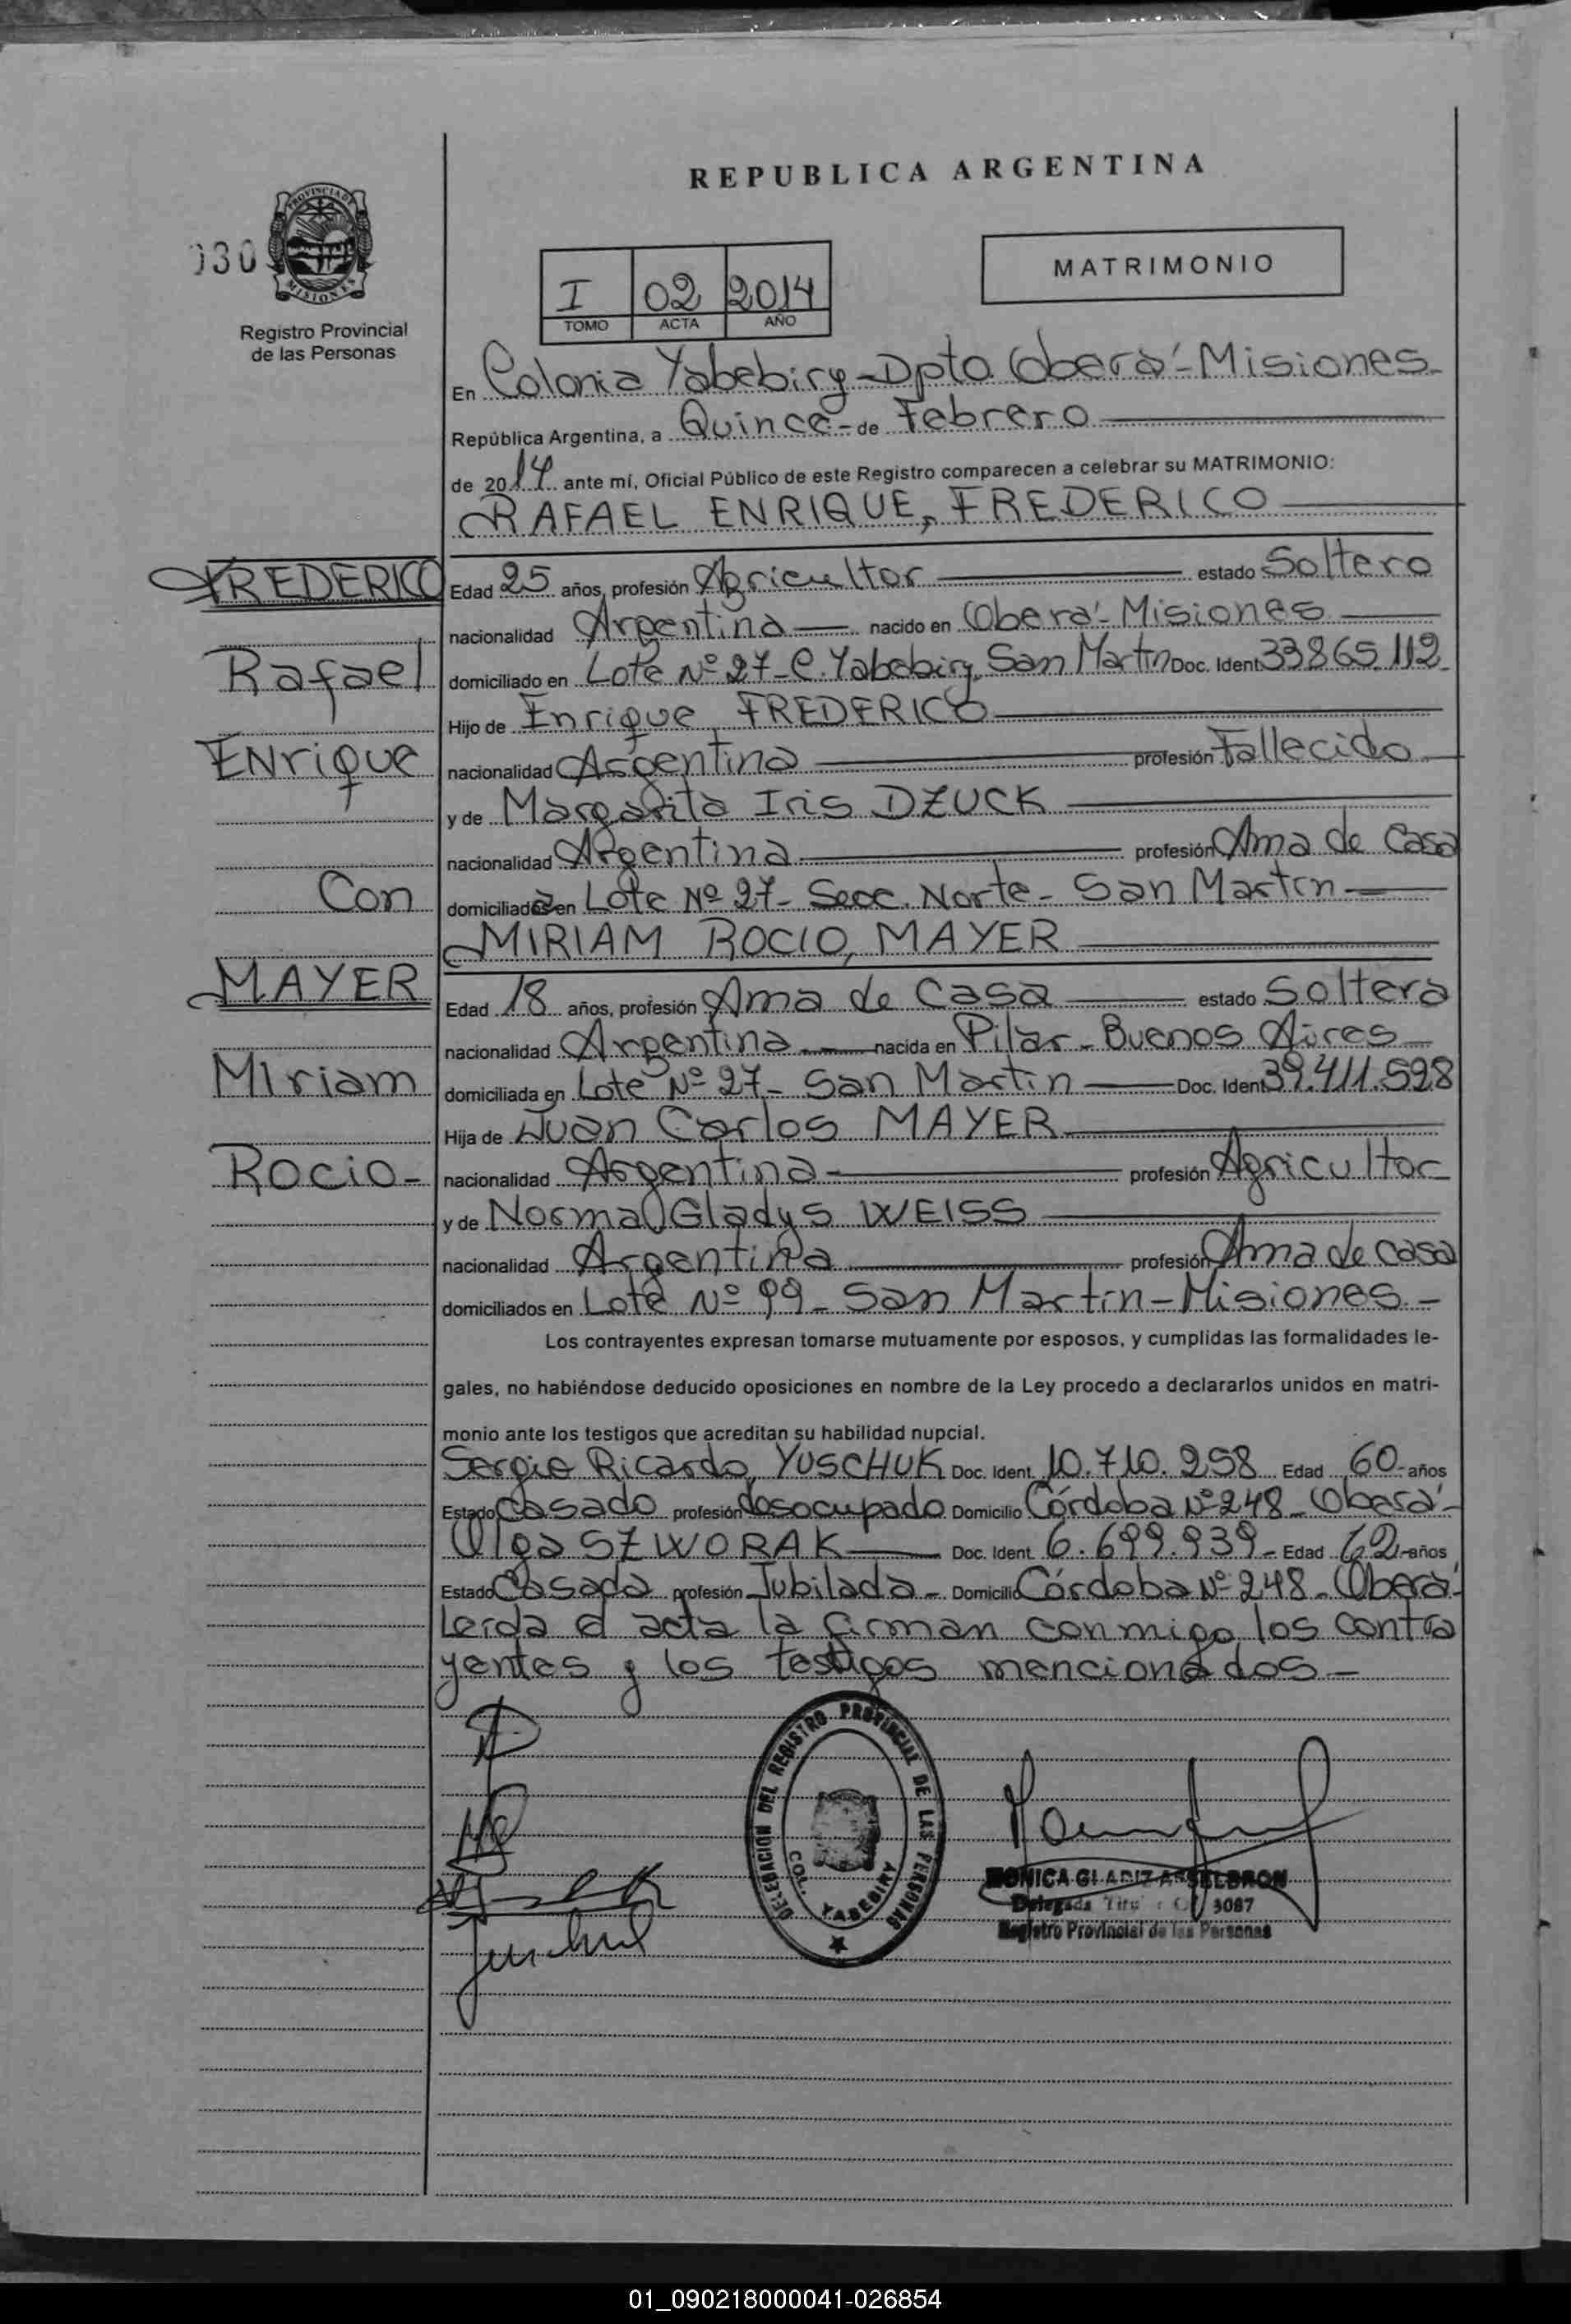 REPUBLICA ARGENTINA
030
PROVINCIA DE
MISIONES
Registro Provincial
de las Personas
I 02 2014
TOMO ACTA AÑO
MATRIMONIO
En Colonia Yabebiry - Dpto. Oberá - Misiones -
República Argentina, a Quince - de Febrero
de 2014 ante mí, Oficial Público de este Registro comparecen a celebrar su MATRIMONIO:
RAFAEL ENRIQUE, FREDERICO
FREDERICO
Edad 25 años, profesión Agricultor estado Soltero
nacionalidad Argentina nacido en Oberá - Misiones
Rafael
domiciliado en Lote Nº 27 - C. Yabebiry, San Martín Doc. Ident. 33865.112
Hijo de Enrique FREDERICO
Enrique
nacionalidad Argentina profesión Fallecido
y de Margarita Iris DZUCK
nacionalidad Argentina profesión Ama de Casa
Con
domiciliada en Lote Nº 27 - Secc. Norte - San Martín
MIRIAM ROCIO, MAYER
MAYER
Edad 18 años, profesión Ama de Casa estado Soltera
nacionalidad Argentina nacida en Pilar - Buenos Aires
Miriam
domiciliada en Lote Nº 27 - San Martín Doc. Ident. 39.411.528
Hija de Juan Carlos MAYER
Rocio -
nacionalidad Argentina profesión Agricultor
y de Norma Gladys WEISS
nacionalidad Argentina profesión Ama de casa
domiciliados en Lote Nº 99 - San Martín - Misiones -
Los contrayentes expresan tomarse mutuamente por esposos, y cumplidas las formalidades le-
gales, no habiéndose deducido oposiciones en nombre de la Ley procedo a declararlos unidos en matri-
monio ante los testigos que acreditan su habilidad nupcial.
Sergio Ricardo, YUSCHUK Doc. Ident. 10.710.258 Edad 60 años
Estado Casado profesión desocupado Domicilio Córdoba Nº 248 - Oberá -
Olga SZWORAK Doc. Ident. 6.699.939 - Edad 62 años
Estado Casada profesión Jubilada - Domicilio Córdoba Nº 248 - Oberá -
Leída el acta la firman conmigo los contra
yentes y los testigos mencionados -
DELEGACION DEL REGISTRO PROVINCIAL DE LAS PERSONAS
COL. YABEBIRY
MONICA GLADIZ
Delegada 3087
Registro Provincial de las Personas
01_090218000041-026854